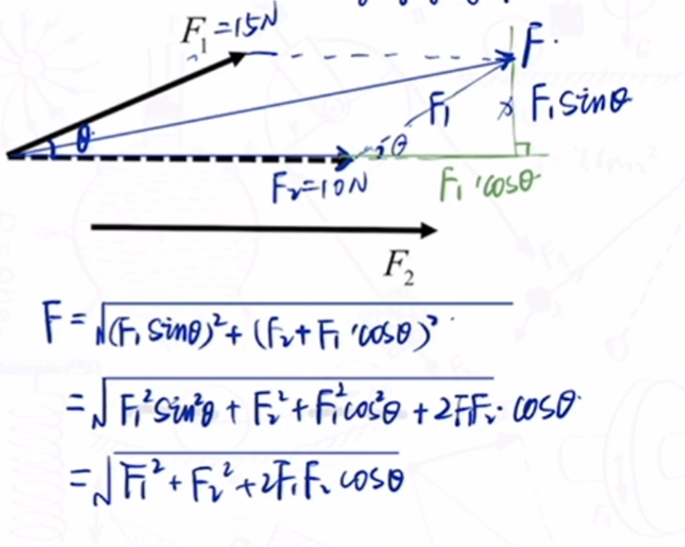 F₁=15N
F
θ
F₁
F₁sinθ
θ
F₂=10N
F₁·cosθ
F₂
F=√(F₁sinθ)²+(F₂+F₁·cosθ)²
=√F₁²sin²θ+F₂²+F₁²cos²θ+2F₁F₂·cosθ
=√F₁²+F₂²+2F₁F₂cosθ